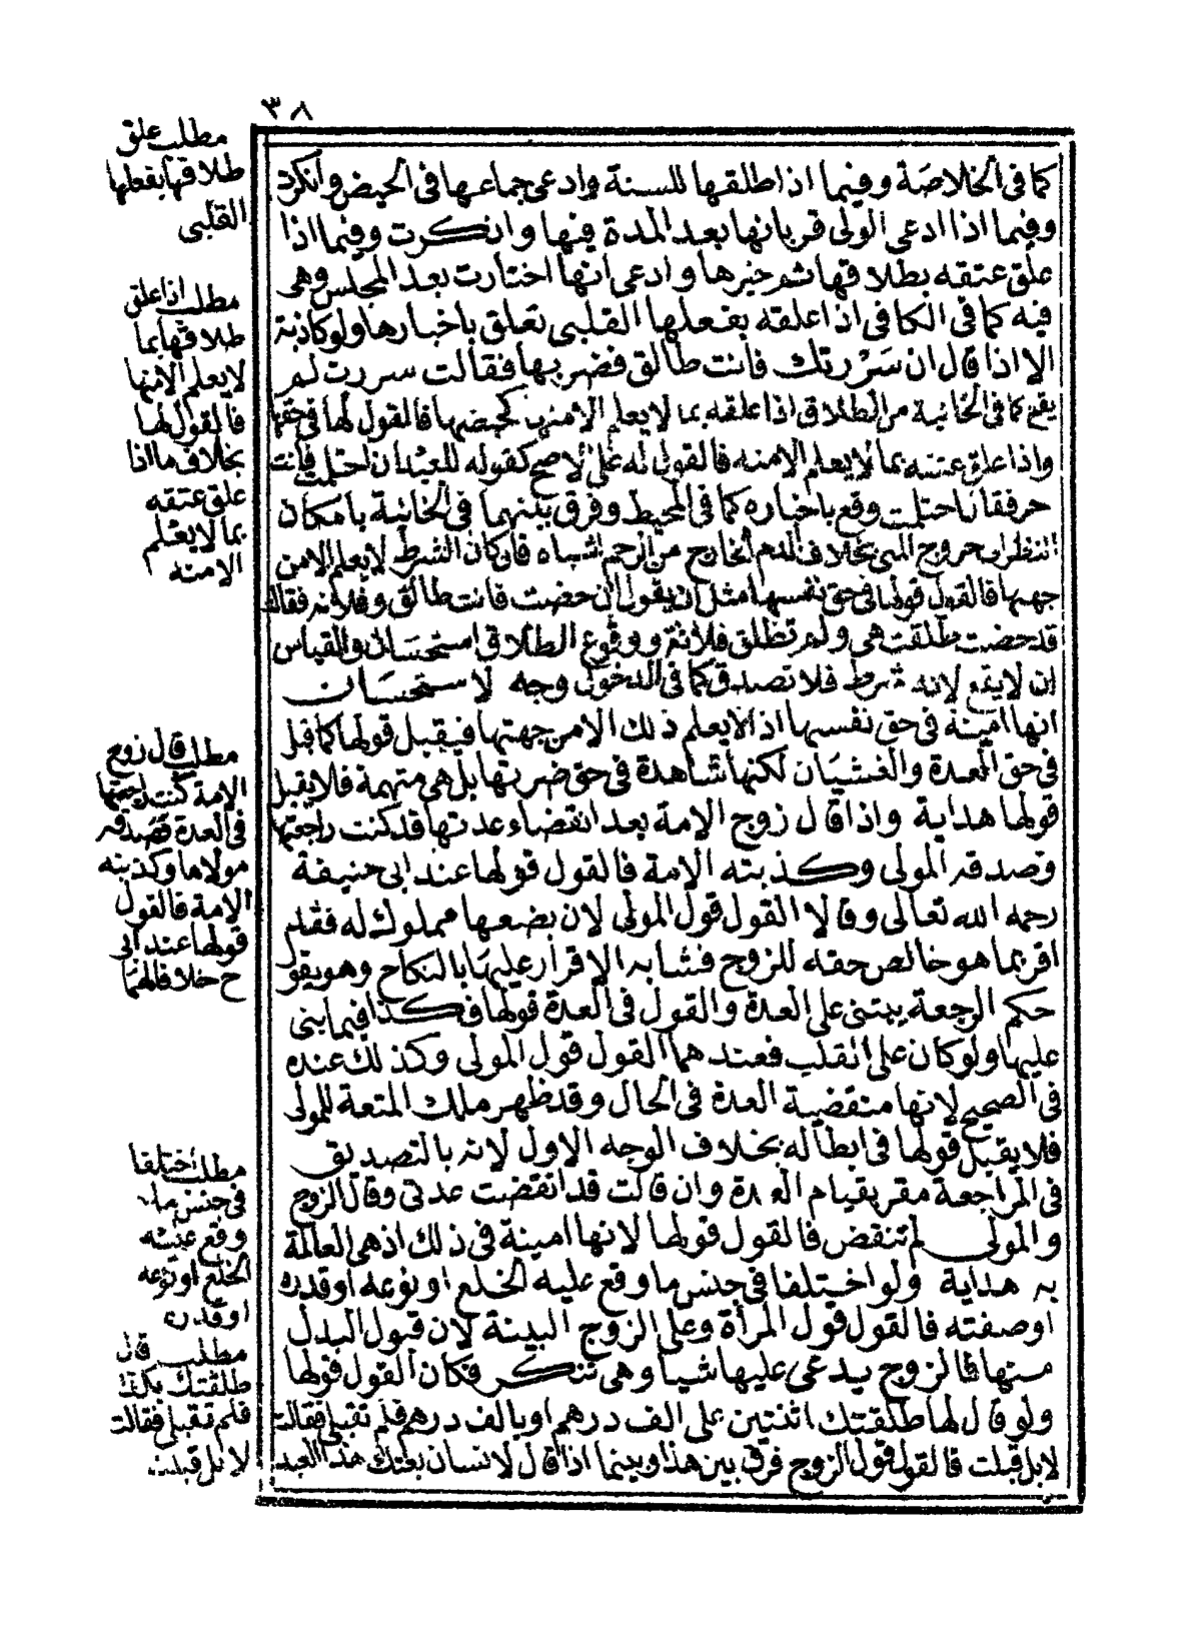 ٣٨
كما فى الخلاصة وفيما اذا طلقها للسنة وادعى جماعها فى الحيض وانكرت
وفيما اذا ادعى المولى قربانها بعد المدة فيها وانكرت وفيما اذا
علق عتقه بطلاقها ثم خيرها وادعى انها اختارت بعد المجلس وهى
فيه كما فى الكافى اذا علقه بفعلها القلبى تعلق باخبارها ولو كاذبة
الا اذا قال ان سررتك فانت طالق فضربها فقالت سررت لم
يقع كما فى الخانية من الطلاق اذا علقه بما لا يعلم الا منها كحيضها فالقول لها فى حقها
واذا علق عتقه بما لا يعلم الا منه فالقول له على الاصح كقوله للعبد ان احتلمت فانت
حر فقال احتلمت وقع باخباره كما فى المحيط وفرق بينهما فى الخانية بامكان
النظر الى خروج المنى بخلاف الدم الخارج من الرحم اشباه فان كان الشرط لا يعلم الا من
جهتها فالقول قولها فى حق نفسها مثل ان يقول ان حضت فانت طالق وفلانة فقالت
قد حضت طلقت هى ولم تطلق فلانة ووقوع الطلاق استحسان والقياس
ان لا يقع لانه شرط فلا تصدق كما فى الدخول وجه لاستحسان
انها امينة فى حق نفسها اذ لا يعلم ذلك الا من جهتها فيقبل قولها كما قبل
فى حق العدة والغشيان لكنها شاهدة فى حق ضرتها بل هى متهمة فلا يقبل
قولها هداية واذا قال زوج الامة بعد انقضاء عدتها قد كنت راجعتها
وصدقه المولى وكذبته الامة فالقول قولها عند ابى حنيفة
رحمه الله تعالى وقالا القول قول المولى لان بضعها مملوك له فقد
اقر بما هو خالص حقه للزوج فشابه الاقرار عليها بالنكاح وهو يقول
حكم الرجعة يبتنى على العدة والقول فى العدة قولها فكذا فيما يبنى
عليها ولو كان على القلب فعندهما القول قول المولى وكذلك عنده
فى الصحيح لانها منقضية العدة فى الحال وقد ظهر ملك المتعة للمولى
فلا يقبل قولها فى ابطاله بخلاف الوجه الاول لانه بالتصديق
فى المراجعة مقر بقيام العدة وان قالت قد انقضت عدتى وقال الزوج
والمولى لم تنقض فالقول قولها لانها امينة فى ذلك اذ هى العالمة
به هداية ولو اختلفا فى جنس ما وقع عليه الخلع او نوعه او قدره
او صفته فالقول قول المرأة وعلى الزوج البينة لان قبول البدل
منها فالزوج يدعى عليها شيا وهى تنكر فكان القول قولها
ولو قال لها طلقتك اثنتين على الف درهم او بالف درهم فلم تقبلى فقالت
لا بل قبلت فالقول قول الزوج فرق بين هذا وبينما اذا قال لانسان بعتك هذا العبد
مطلب علق
طلاقها بفعلها
القلبى
مطلب اذا علق
طلاقها بما
لا يعلم الا منها
فالقول لها
بخلاف ما اذا
علق عتقه
بما لا يعلم
الا منه
مطلب قال زوج
الامة كنت راجعتها
فى العدة فصدقه
مولاها وكذبته
الامة فالقول
قولها عند ابى
ح خلافا لهما
مطلب اختلفا
فى جنس ما
وقع عليه
الخلع او نوعه
او قدره
مطلب قال
طلقتك بكذا
فلم تقبلى فقالت
لا بل قبلت